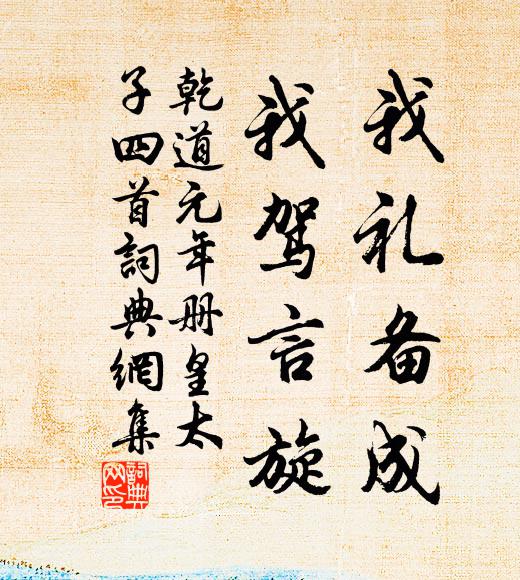 我礼备成
我驾言旋
乾道元年册皇太
子四首詞典網集
詞典
网印